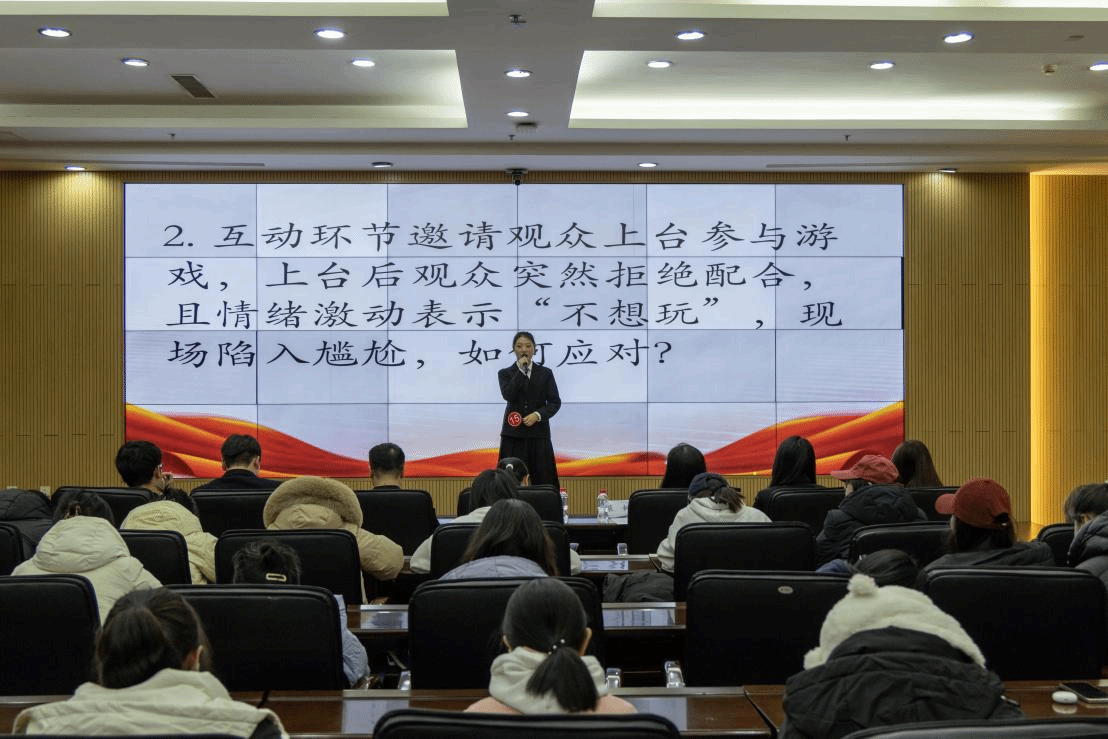 2. 互动环节邀请观众上台参与游
戏，上台后观众突然拒绝配合，
且情绪激动表示“不想玩”，现
场陷入尴尬，如何应对?
15